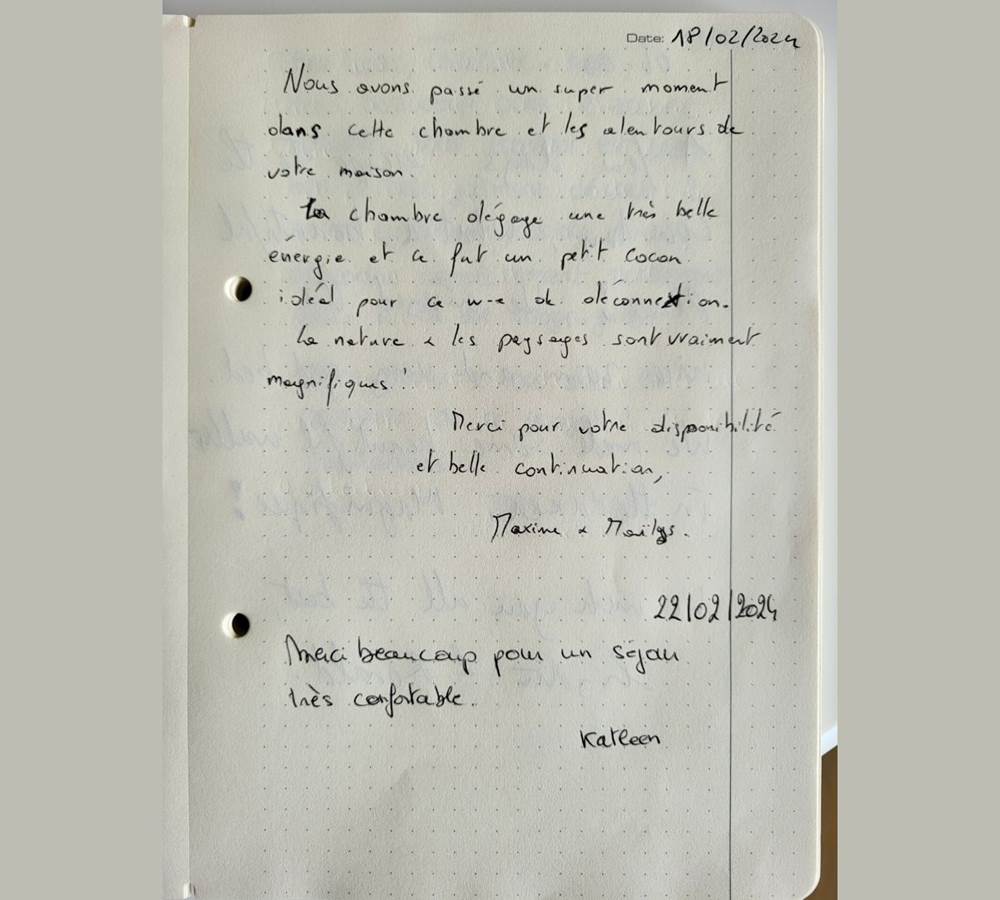 Date: 18/02/2024
Nous avons passé un super moment
dans cette chambre et les alentours de
votre maison.
La chambre dégage une très belle
énergie et ce fut un petit cocon
idéal pour ce w-e de déconnexion.
La nature & les paysages sont vraiment
magnifiques !
Merci pour votre disponibilité
et belle continuation,
Maxime & Maïlys.
22/02/2024
Merci beaucoup pour un séjour
très confortable.
Katleen